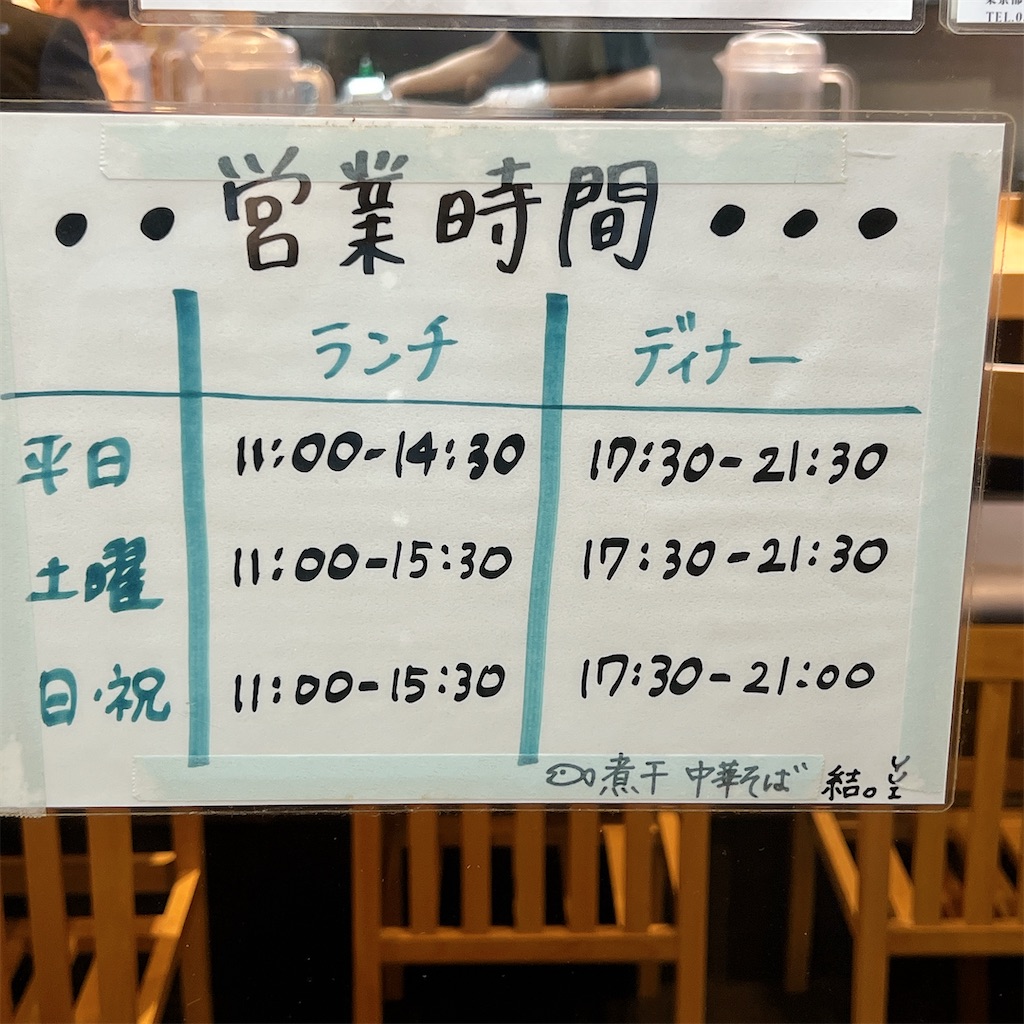 TEL.0
・・営業時間・・・
ランチ ディナー
平日 11:00-14:30 17:30-21:30
土曜 11:00-15:30 17:30-21:30
日・祝 11:00-15:30 17:30-21:00
煮干 中華そば 結。YUI